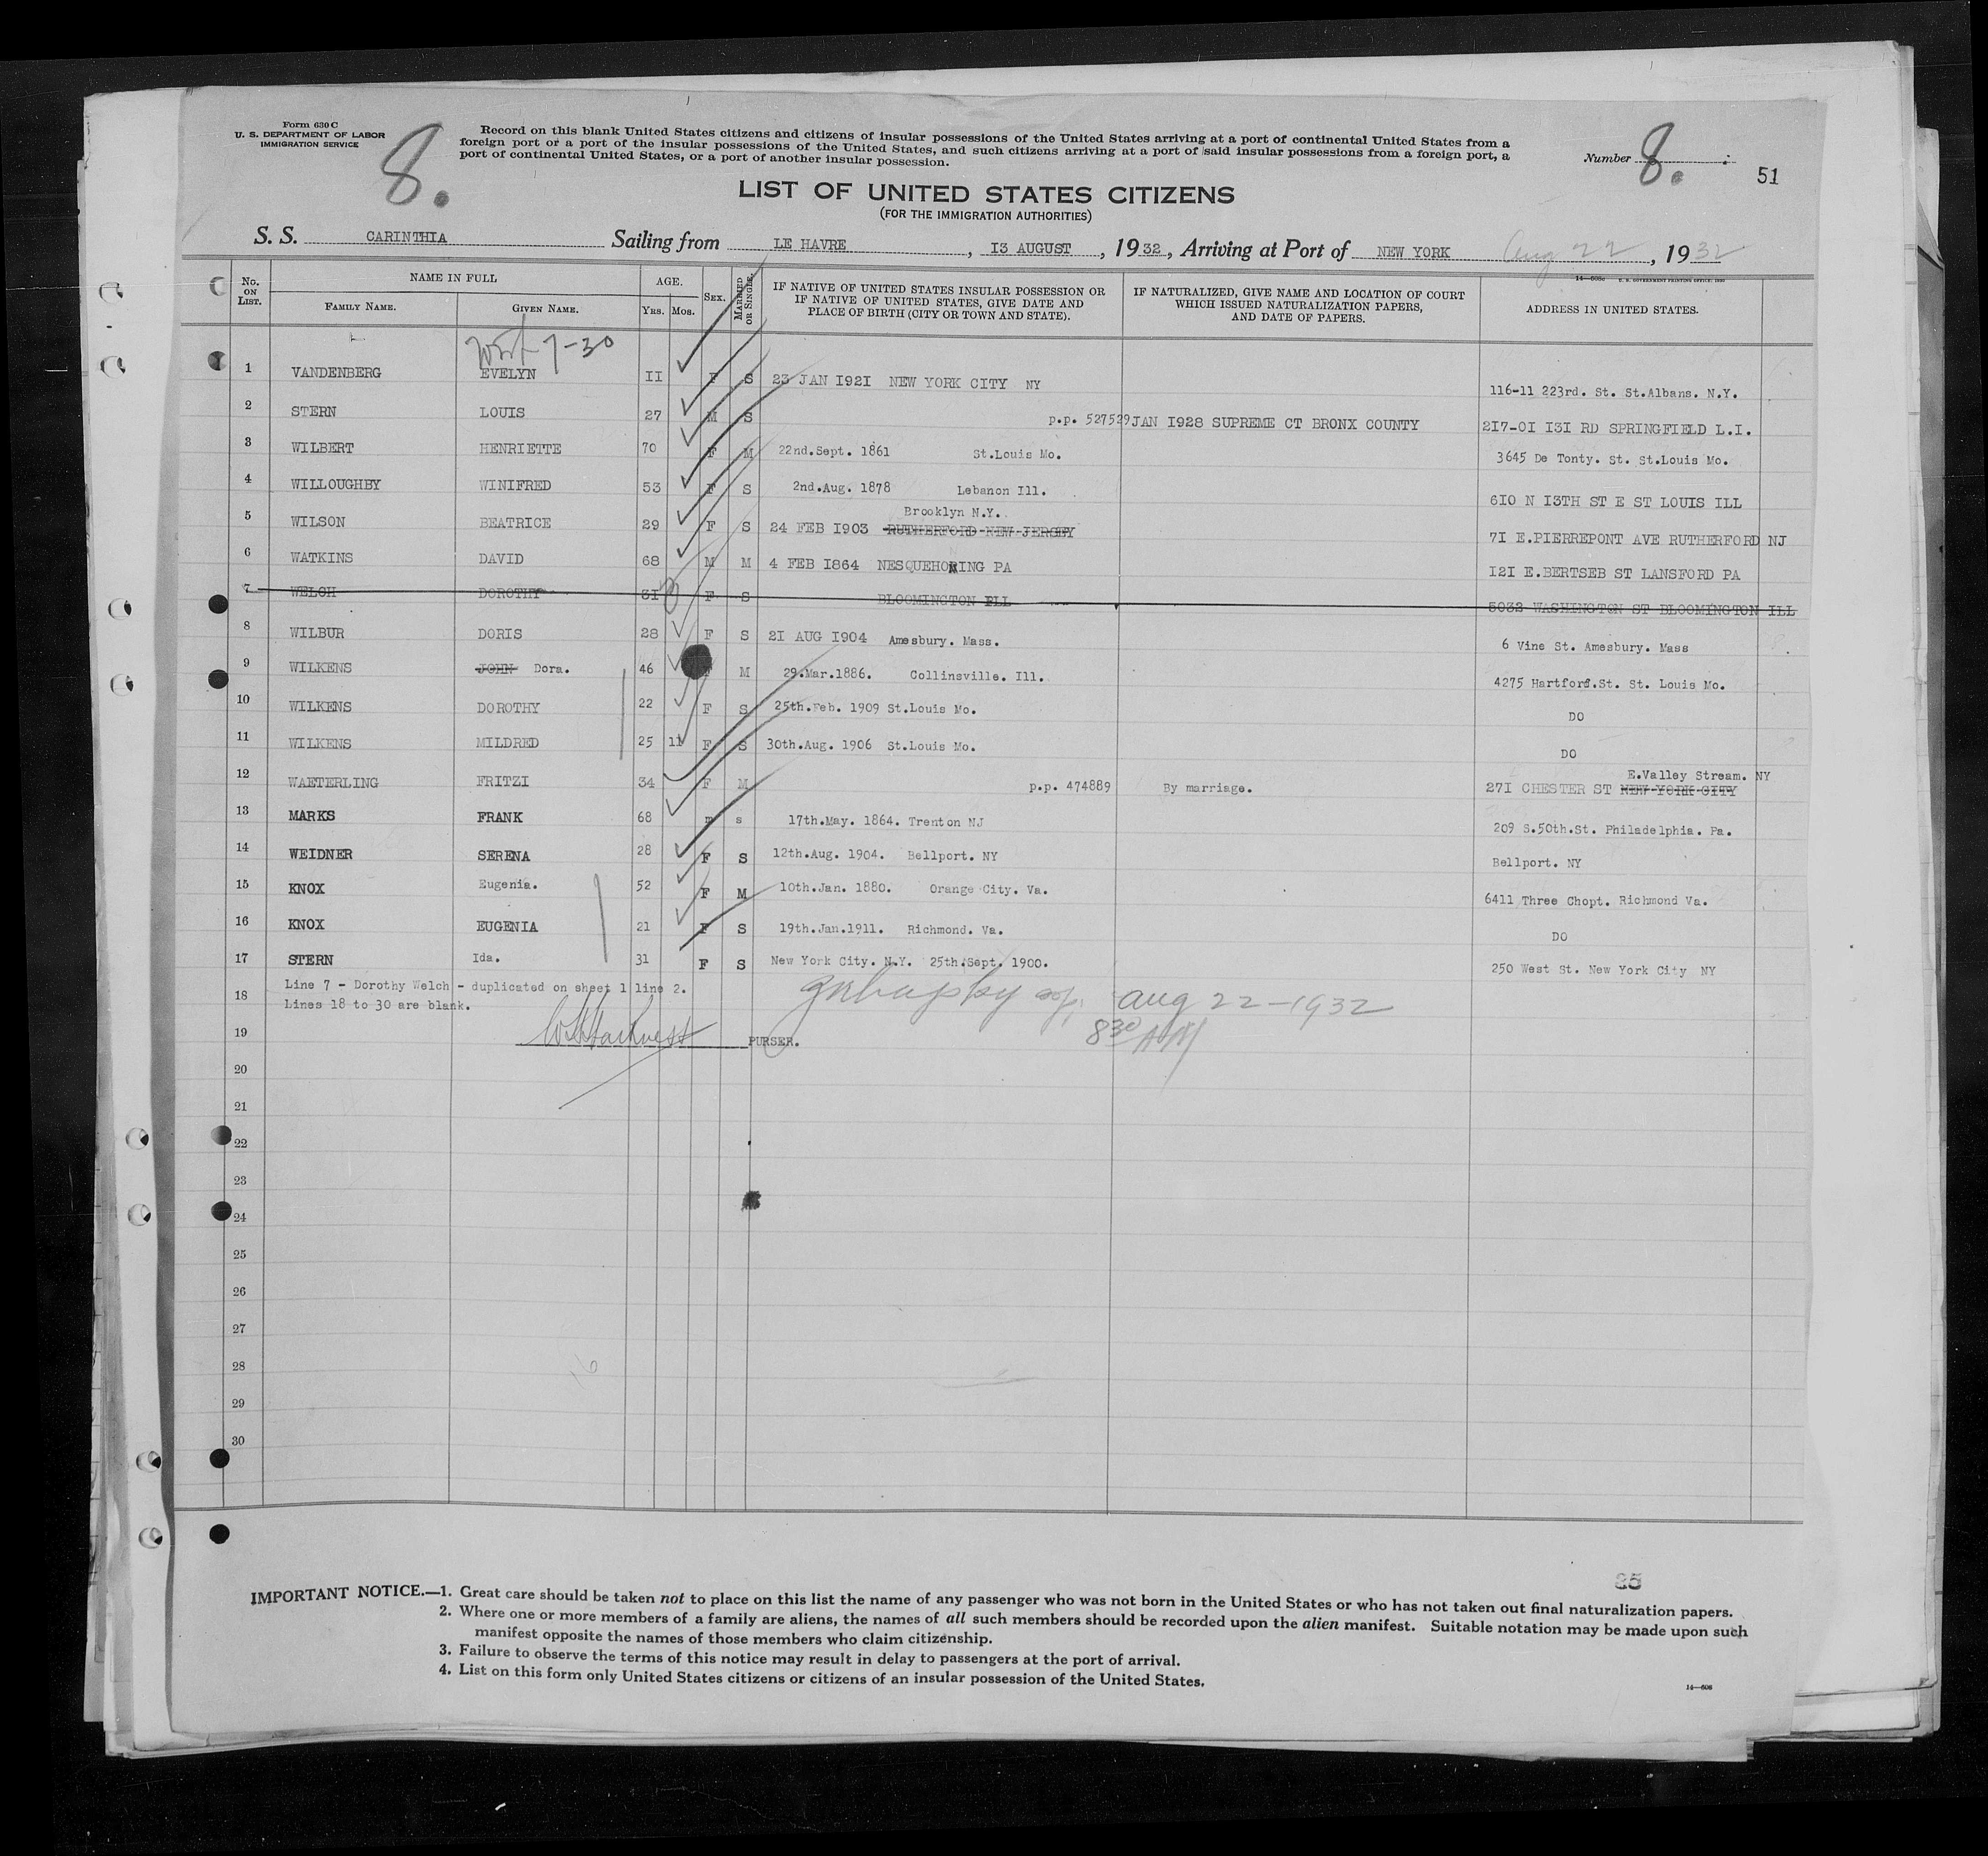 Form 630 C
U. S. DEPARTMENT OF LABOR
IMMIGRATION SERVICE
8.
Record on this blank United States citizens and citizens of insular possessions of the United States arriving at a port of continental United States from a
foreign port or a port of the insular possessions of the United States, and such citizens arriving at a port of said insular possessions from a foreign port, a
port of continental United States, or a port of another insular possession.
Number 8.
51
LIST OF UNITED STATES CITIZENS
(FOR THE IMMIGRATION AUTHORITIES)
S. S. CARINTHIA Sailing from LE HAVRE, I3 AUGUST, 1932, Arriving at Port of NEW YORK Aug 22, 1932
No. ON LIST. NAME IN FULL FAMILY NAME. GIVEN NAME. AGE. YRS. MOS. SEX. MARRIED OR SINGLE. IF NATIVE OF UNITED STATES INSULAR POSSESSION OR IF NATIVE OF UNITED STATES, GIVE DATE AND PLACE OF BIRTH (CITY OR TOWN AND STATE). IF NATURALIZED, GIVE NAME AND LOCATION OF COURT WHICH ISSUED NATURALIZATION PAPERS, AND DATE OF PAPERS. ADDRESS IN UNITED STATES.
7-30
1 VANDENBERG EVELYN II F S 23 JAN I92I NEW YORK CITY NY 116-11 223rd. St. St.Albans. N.Y.
2 STERN LOUIS 27 M S p.p. 527529 JAN I928 SUPREME CT BRONX COUNTY 2I7-OI I3I RD SPRINGFIELD L.I.
3 WILBERT HENRIETTE 70 F M 22nd.Sept. 1861 St.Louis Mo. 3645 De Tonty. St. St.Louis Mo.
4 WILLOUGHBY WINIFRED 53 F S 2nd.Aug. 1878 Lebanon Ill. 6IO N I3TH ST E ST LOUIS ILL
Brooklyn N.Y.
5 WILSON BEATRICE 29 F S 24 FEB I903 RUTHERFORD NEW JERSEY 7I E.PIERREPONT AVE RUTHERFORD NJ
6 WATKINS DAVID 68 M M 4 FEB I864 NESQUEHONING PA I2I E.BERTSEB ST LANSFORD PA
7 WELCH DOROTHY 3I F S BLOOMINGTON ILL 5032 WASHINGTON ST BLOOMINGTON ILL
8 WILBUR DORIS 28 F S 2I AUG I904 Amesbury. Mass. 6 Vine St. Amesbury. Mass
9 WILKENS JOHN Dora. 46 M 29.Mar.1886. Collinsville. Ill. 4275 Hartford.St. St. Louis Mo.
10 WILKENS DOROTHY 22 F S 25th.Feb. 1909 St.Louis Mo. DO
11 WILKENS MILDRED 25 11 F S 30th.Aug. 1906 St.Louis Mo. DO
E.Valley Stream. NY
12 WAETERLING FRITZI 34 F M p.p. 474889 By marriage. 27I CHESTER ST NEW YORK CITY
13 MARKS FRANK 68 m s 17th.May. 1864. Trenton NJ 209 S.50th.St. Philadelphia. Pa.
14 WEIDNER SERENA 28 F S 12th.Aug. 1904. Bellport. NY Bellport. NY
15 KNOX Eugenia. 52 F M 10th.Jan. 1880. Orange City. Va. 6411 Three Chopt. Richmond Va.
16 KNOX EUGENIA 21 F S 19th.Jan.1911. Richmond. Va. DO
17 STERN Ida. 31 F S New York City. N.Y. 25th.Sept. 1900. 250 West St. New York City NY
Line 7 - Dorothy Welch - duplicated on sheet 1 line 2.
18 Lines 18 to 30 are blank.
aug 22-1932
19 PURSER. 8 30 AM
20
21
22
23
24
25
26
27
28
29
30
16
35
IMPORTANT NOTICE.—1. Great care should be taken not to place on this list the name of any passenger who was not born in the United States or who has not taken out final naturalization papers.
2. Where one or more members of a family are aliens, the names of all such members should be recorded upon the alien manifest. Suitable notation may be made upon such
manifest opposite the names of those members who claim citizenship.
3. Failure to observe the terms of this notice may result in delay to passengers at the port of arrival.
4. List on this form only United States citizens or citizens of an insular possession of the United States.
14—608